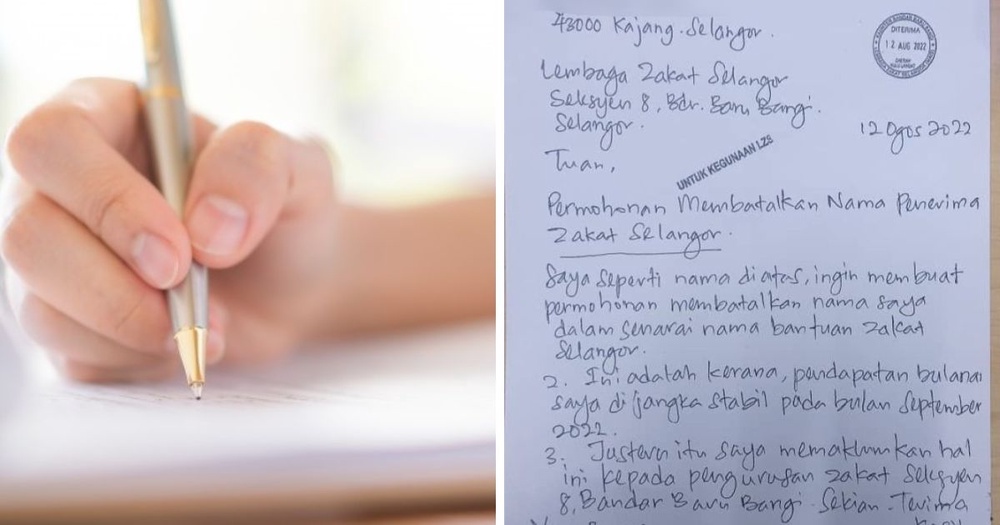 43000 Kajang. Selangor.
DITERIMA
12 AUG 2022
Lembaga Zakat Selangor
Seksyen 8, Bdr. Baru Bangi.
Selangor.
12 Ogos 2022
Tuan,
UNTUK KEGUNAAN LZS
Permohonan Membatalkan Nama Penerima
Zakat Selangor.
Saya seperti nama diatas, ingin membuat
permohonan membatalkan nama saya
dalam senarai nama bantuan zakat
Selangor.
2. Ini adalah kerana, pendapatan bulanan
saya di jangka stabil pada bulan September
2022.
3. Justeru itu saya memaklumkan hal
ini kepada pengurusan zakat Seksyen
8, Bandar Baru Bangi. Sekian. Terima